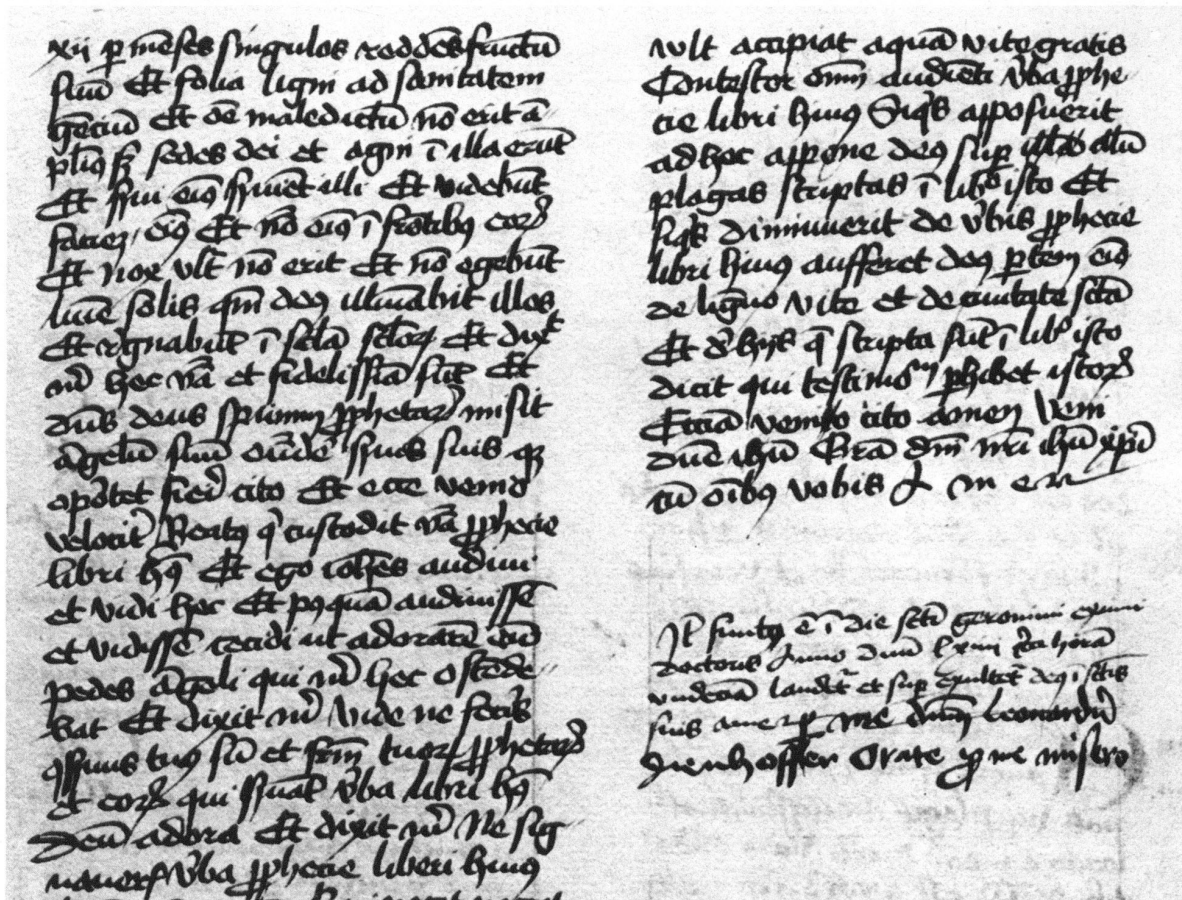 xij ꝑ mēses singulos reddēs fructū
suū Et folia ligni ad sanitatem
gēciū Et oē maledictū nō erit ā
pliꝰ sꝫ sedes dei et agni ī illa erūt
Et ſſui eiꝰ ſſuiēt illi Et videbūt
faciē eiꝰ Et nō eiꝰ ī frōtibꝰ eoꝝ
Et nox vlt̄ nō erit Et nō egebūt
lumē solis qm̄ deꝰ illuābit illos
Et regnabūt ī scl̄a scl̄oꝝ Et dixᵗ
m̄ hec v̄ba et fidelissīa sūt Et
dn̄s deus sp̄uum ꝓphetaꝝ misit
āgelū suū on̄de ſſuos suis q̄
opōtet fieri cito Et ecce venio
velocit̄ Beatꝰ q̄ custodit v̄ba ꝓphecie
libri hꝰ Et ego ioh̄es audiui
et vidi hec Et pꝰquā audiuissē
et vidissē cecidi ut adorarē an̄
pedes āgeli qui m̄ hec ostede
bat Et dixit m̄ Vide ne fec̄is
ꝯſſuus tuꝰ sū et fr̄m tuoꝝ ꝓphetaꝝ
et eoꝝ qui ſſuāt v̄ba libri hꝰ
Deū adora Et dixit m̄ Ne sig
naueris v̄ba ꝓphecie liberi huiꝰ
vlt accipiat aquā vite gratis
Contestor omni audiēti v̄ba ꝓphe
cie libri huiꝰ Siq̄s apposuerit
ad hec appone deꝰ suꝑ illū
plagas scriptas ī libro isto Et
siq̄s diminuerit de v̄bis ꝓphecie
libri huiꝰ aufferet deꝰ ꝑtem eiꝰ
de ligno vite et de ciuitate sctā
Et de hijs q̄ scripta sūt ī libro isto
dicit qui testimoᵐ ꝑhibet istoꝝ
Etciā venio cito amen Veni
dn̄e ihū Gr̄a dn̄i nr̄i ihū xp̄i
cū oībꝰ vobis A m e n
finitꝰ ē ī die sctī geronimi eximi
doctoris Anno dn̄i lxiiii horā
vndeciā laudet̄ et suꝑ exultet̄ deꝰ ī sctīs
suis amen ꝑ me leonardū
dienhoffer Orate ꝓ me misero